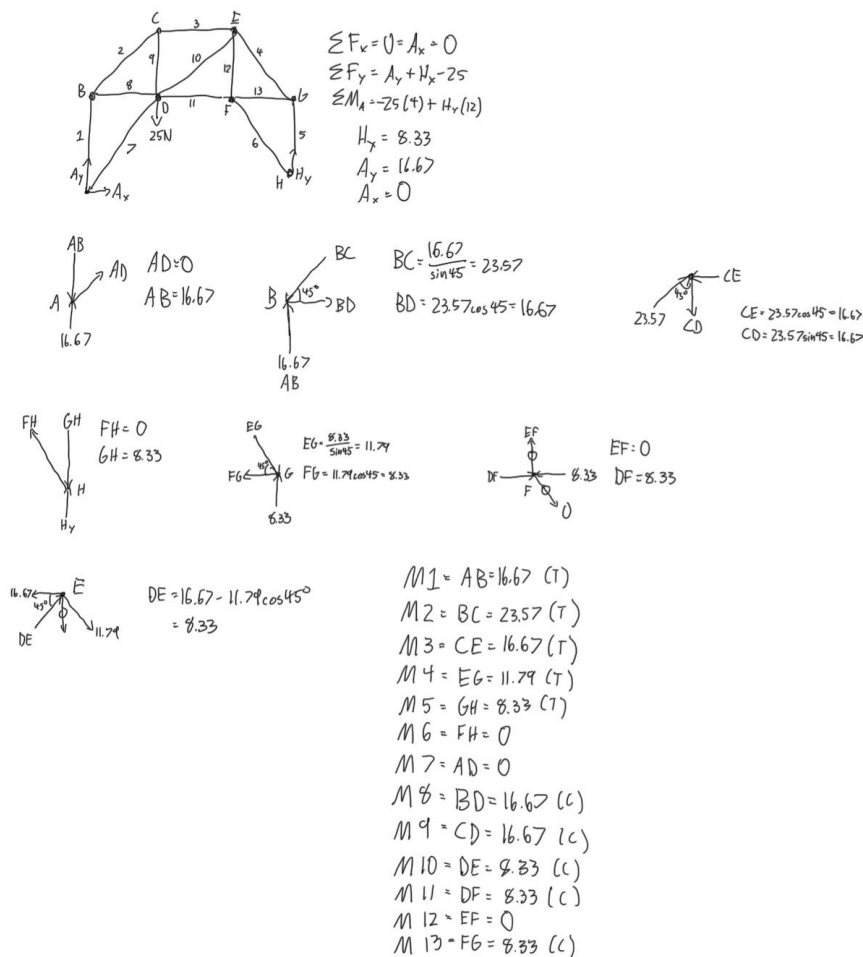 C 3 E
2 9 10 12 4
B 8 D 11 F 13 G
1 7 25N 6 5
Ay Ax H Hy
ΣFx = 0 = Ax = 0
ΣFy = Ay + Hx - 25
ΣMA = -25(4) + Hy(12)
Hy = 8.33
Ay = 16.67
Ax = 0
AB
AD
A
16.67
AD=0
AB=16.67
BC
B 45° BD
16.67
AB
BC = 16.67/sin45 = 23.57
BD = 23.57cos45 = 16.67
CE
45°
23.57 CD
CE = 23.57cos45 = 16.67
CD = 23.57sin45 = 16.67
FH GH
H
Hy
FH = 0
GH = 8.33
EG
45°
FG G
8.33
EG = 8.33/sin45 = 11.79
FG = 11.79cos45 = 8.33
EF
0
DF 8.33
F 0
0
EF = 0
DF = 8.33
16.67 E
45° 0
DE 11.79
DE = 16.67 - 11.79cos45°
= 8.33
M1 = AB = 16.67 (T)
M2 = BC = 23.57 (T)
M3 = CE = 16.67 (T)
M4 = EG = 11.79 (T)
M5 = GH = 8.33 (T)
M6 = FH = 0
M7 = AD = 0
M8 = BD = 16.67 (C)
M9 = CD = 16.67 (C)
M10 = DE = 8.33 (C)
M11 = DF = 8.33 (C)
M12 = EF = 0
M13 = FG = 8.33 (C)